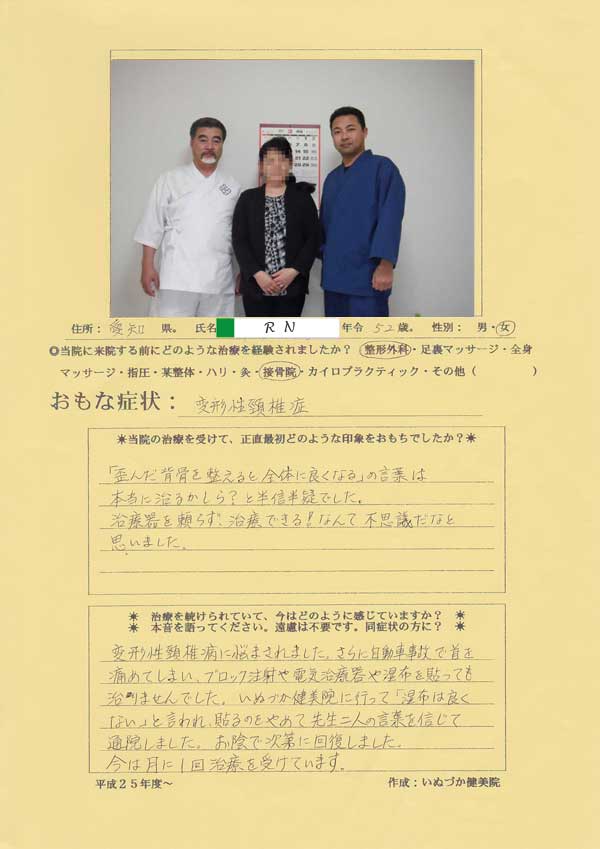 住所： 愛知 県。 氏名 R N 年令 52 歳。 性別： 男・女
◎当院に来院する前にどのような治療を経験されましたか？ 整形外科・足裏マッサージ・全身
マッサージ・指圧・某整体・ハリ・灸・接骨院・カイロプラクティック・その他（ ）
おもな症状： 変形性頸椎症
✷当院の治療を受けて、正直最初どのような印象をおもちでしたか？✷
「歪んだ背骨を整えると全体に良くなる」の言葉は
本当に治るかしら？と半信半疑でした。
治療器を頼らず、治療できる！なんて不思議だなと
思いました。
✷ 治療を続けられていて、今はどのように感じていますか？ ✷
✷ 本音を語ってください。遠慮は不要です。同症状の方に？ ✷
変形性頸椎病に悩まされました。さらに自動車事故で首を
痛めてしまい、ブロック注射や電気治療器や湿布を貼っても
治りませんでした。いぬづか健美院に行って「湿布は良く
ない」と言われ、貼るのをやめて先生二人の言葉を信じて
通院しました。お陰で次第に回復しました。
今は月に1回治療を受けています。
平成２５年度～ 作成：いぬづか健美院